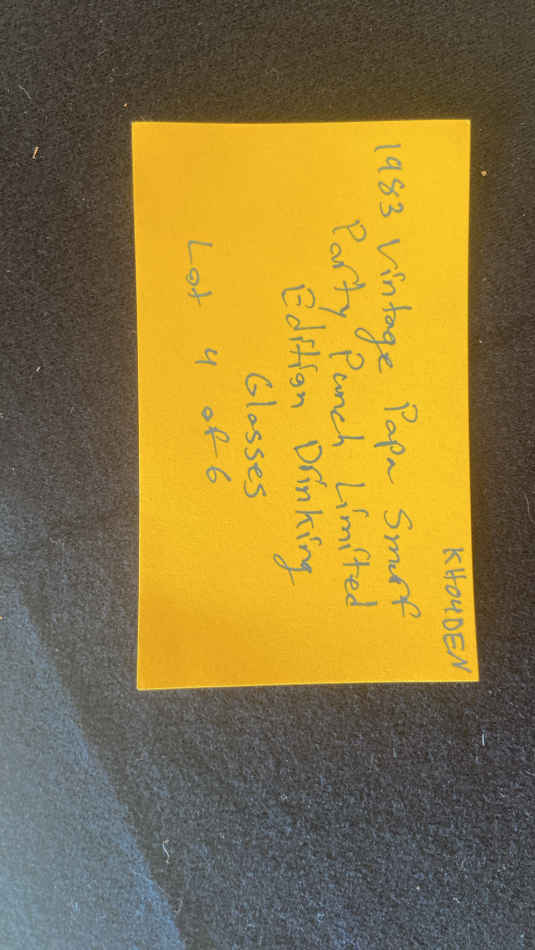 KHO4DEN
1983 Vintage Papa Smurf
Party Punch Limited
Edition Drinking
Glasses
Lot 4 of 6